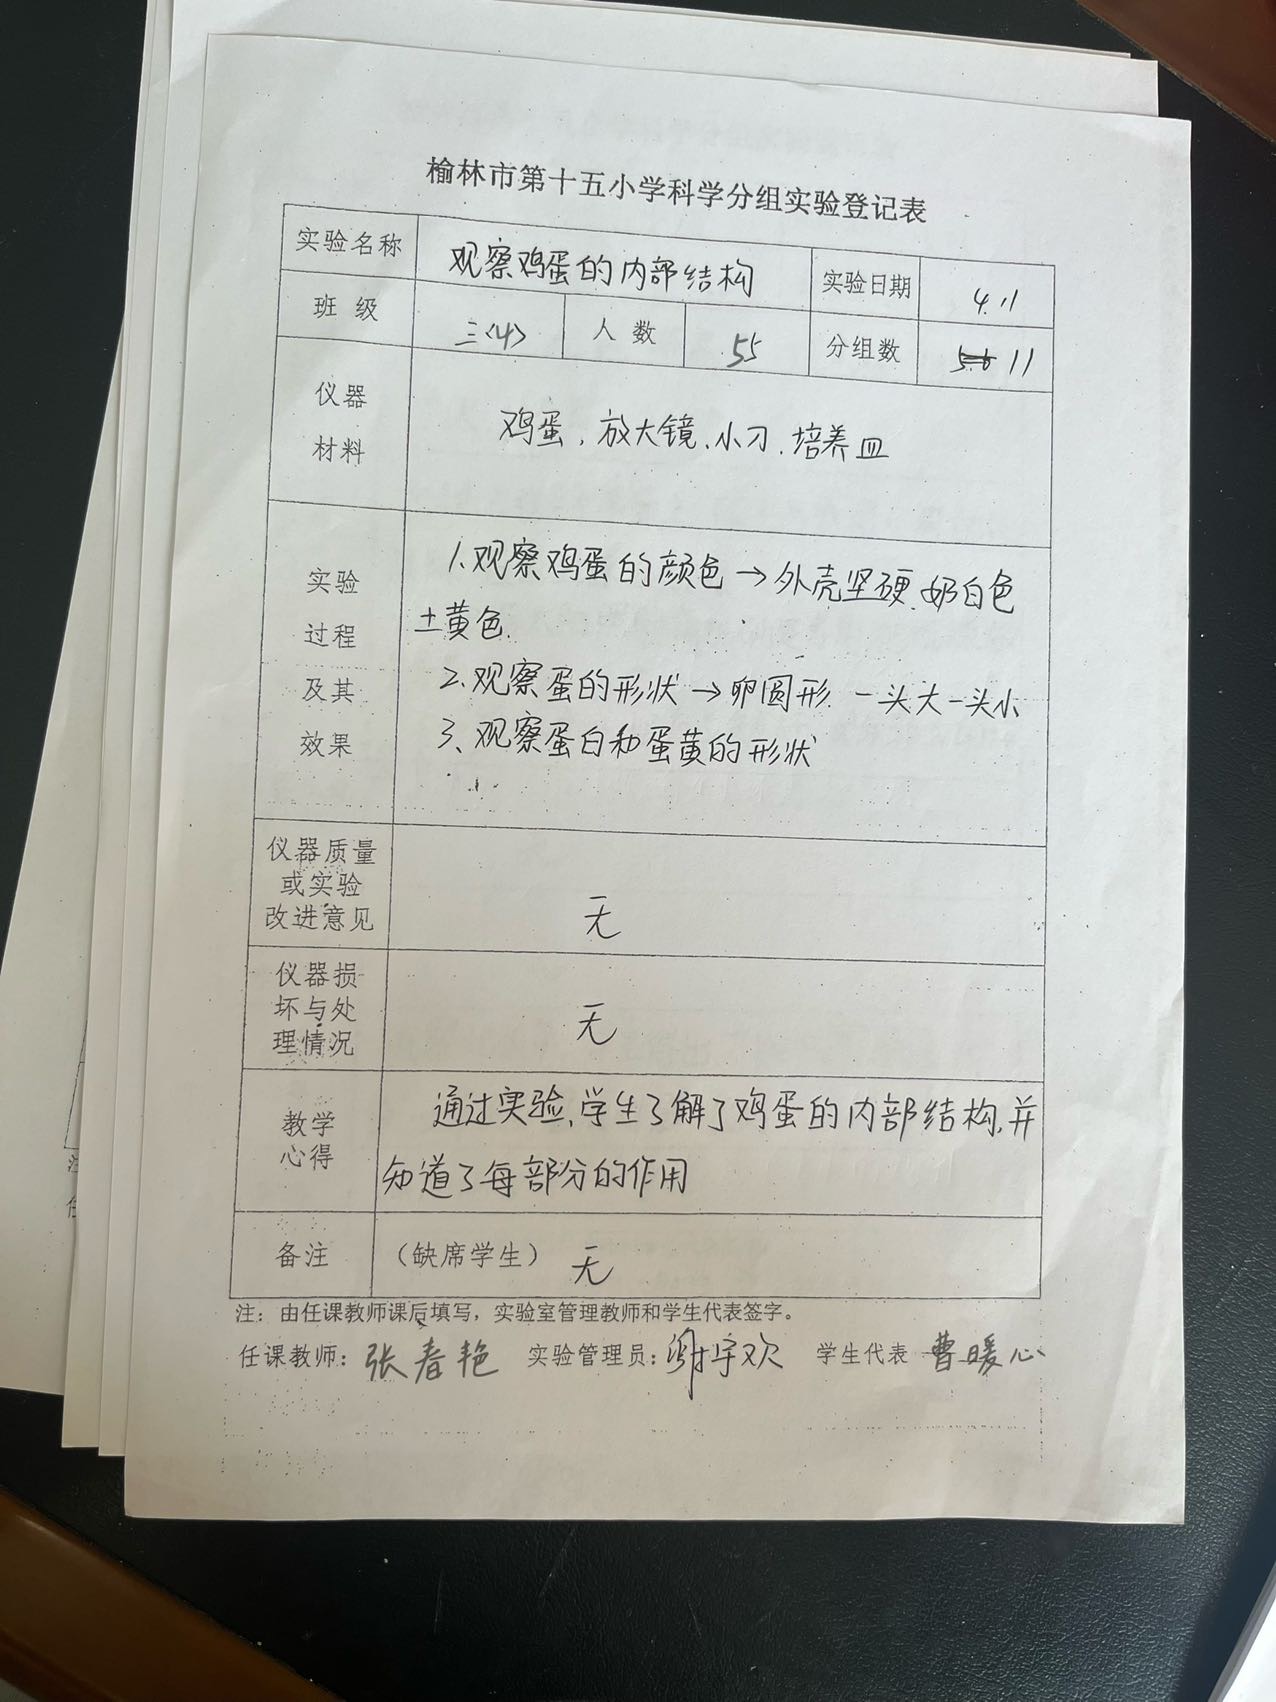 榆林市第十五小学科学分组实验登记表
实验名称 观察鸡蛋的内部结构 实验日期 4.11
班级 三<4> 人数 55 分组数 11
仪器
材料
鸡蛋、放大镜、小刀、培养皿
实验
过程
及其
效果
1、观察鸡蛋的颜色→外壳坚硬、奶白色
土黄色.
2、观察蛋的形状→卵圆形.一头大一头小
3、观察蛋白和蛋黄的形状
仪器质量
或实验
改进意见
无
仪器损
坏与处
理情况
无
教学
心得
通过实验、学生了解了鸡蛋的内部结构,并
知道了每部分的作用
备注 (缺席学生) 无
注：由任课教师课后填写，实验室管理教师和学生代表签字。
任课教师：张春艳 实验管理员：谢宇欢 学生代表 曹暖心